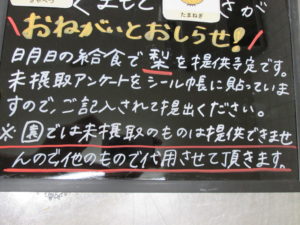 たまねぎ
\おねがいとおしらせ!/
日月日の給食で梨を提供予定です。
未摂取アンケートをシール帳に貼っていま
すので、ご記入されて提出ください。
※園では未摂取のものは提供できませ
んので他のもので代用させて頂きます